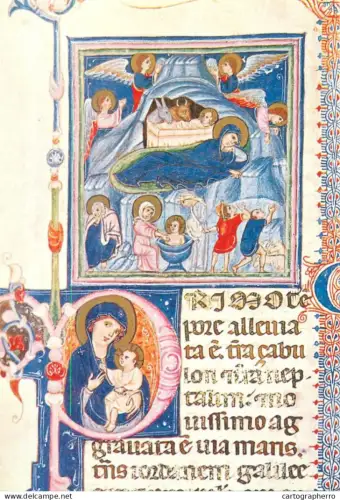 PRIMO tē
pore alleuia
ta ē. t̄ra çabu
lon ⁊ t̄ra nep
talim. ⁊ no
uissimo ag
grauata ē uia maris.
t̄ns iordanem galilee
cartographerro